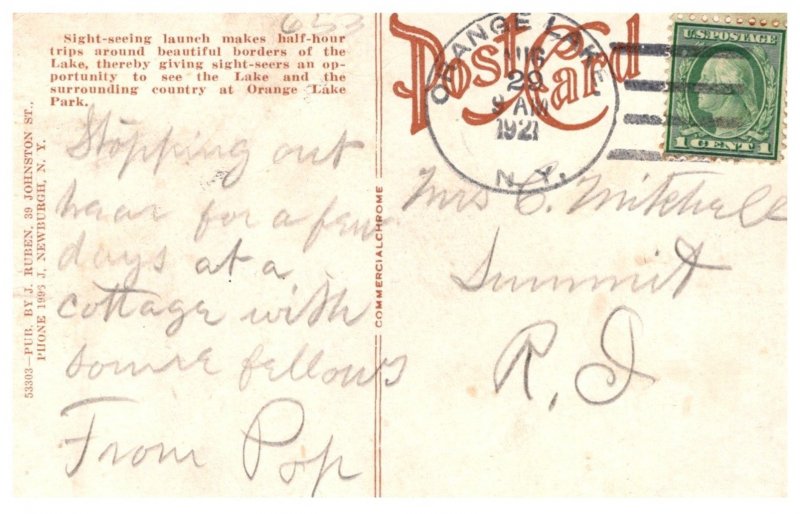 653
Sight-seeing launch makes half-hour
trips around beautiful borders of the
Lake, thereby giving sight-seers an op-
portunity to see the Lake and the
surrounding country at Orange Lake
Park.
Stopping out
hear for a few
days at a
cottage with
some fellows
From Pop
53303—PUB. BY J. RUBEN, 39 JOHNSTON ST.,
PHONE 1996 J, NEWBURGH, N. Y.
COMMERCIALCHROME
Post Card
ORANGE LAKE
AUG
29
9 AM
1921
N.Y.
U.S. POSTAGE
1 CENT 1
Mrs C. Mitchell
Summit
R. I